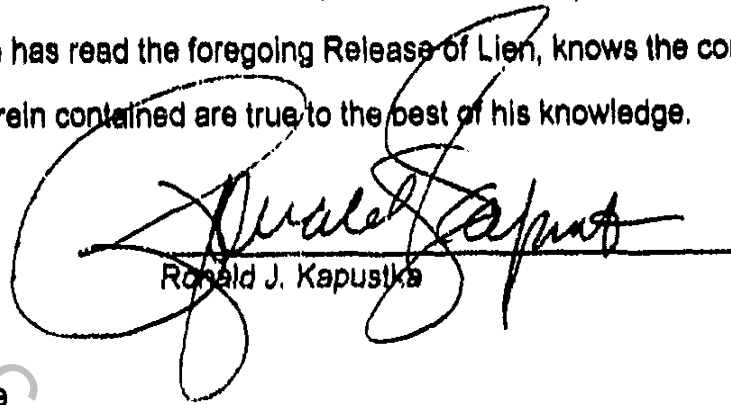 has read the foregoing Release of Lien, knows the
rein contained are true to the best of his knowledge.
Ronald J. Kapustka